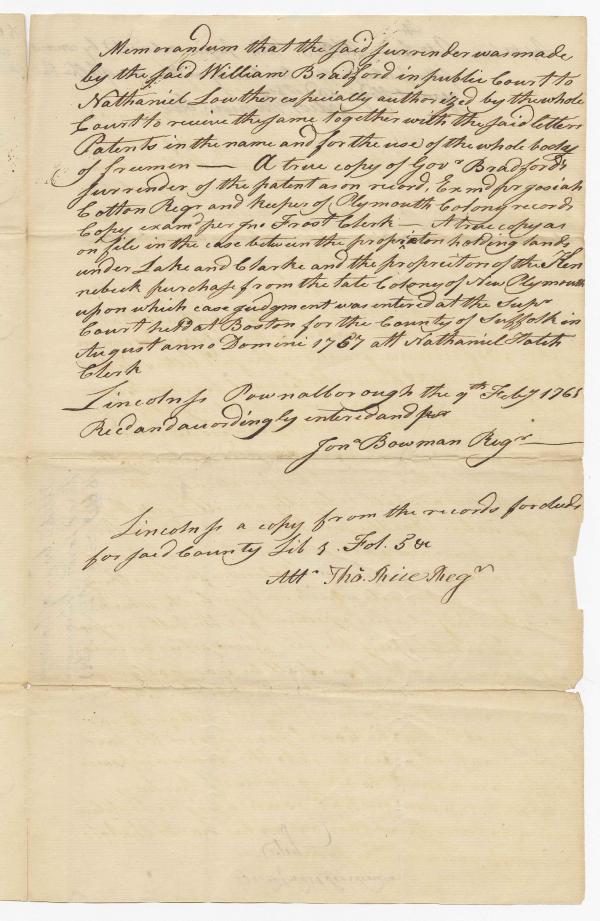 Memorandum that the said surrender was made
by the said William Bradford in public Court to
Nathaniel Lowther especially authorized by the whole
Court to receive the same together with the said letters
Patents in the name and for the use of the whole body
of freemen — A true copy of Govr Bradfords
surrender of the patent as on record, Examd pr Josiah
Cotton Regr and keeper of Plymouth Colony records
Copy examd per Jno Frost Clerk — A true copy as
on file in the case between the proprietors holding lands
under Lake and Clarke and the proprietors of the Ken
nebeck purchase from the late Colony of New Plymouth
upon which case judgment was entered at the Supr
Court held at Boston for the County of Suffolk in
August anno Domini 1767 att Nathaniel Hatch
Clerk
Lincoln ss Pownalborough the 9th Feby 1768
Recd and accordingly entered and
Jona Bowman Regr
Lincoln ss a copy from the records for deeds
for said County Lib 5. Fol. 5 &c
Attr Tho. Rice Regr